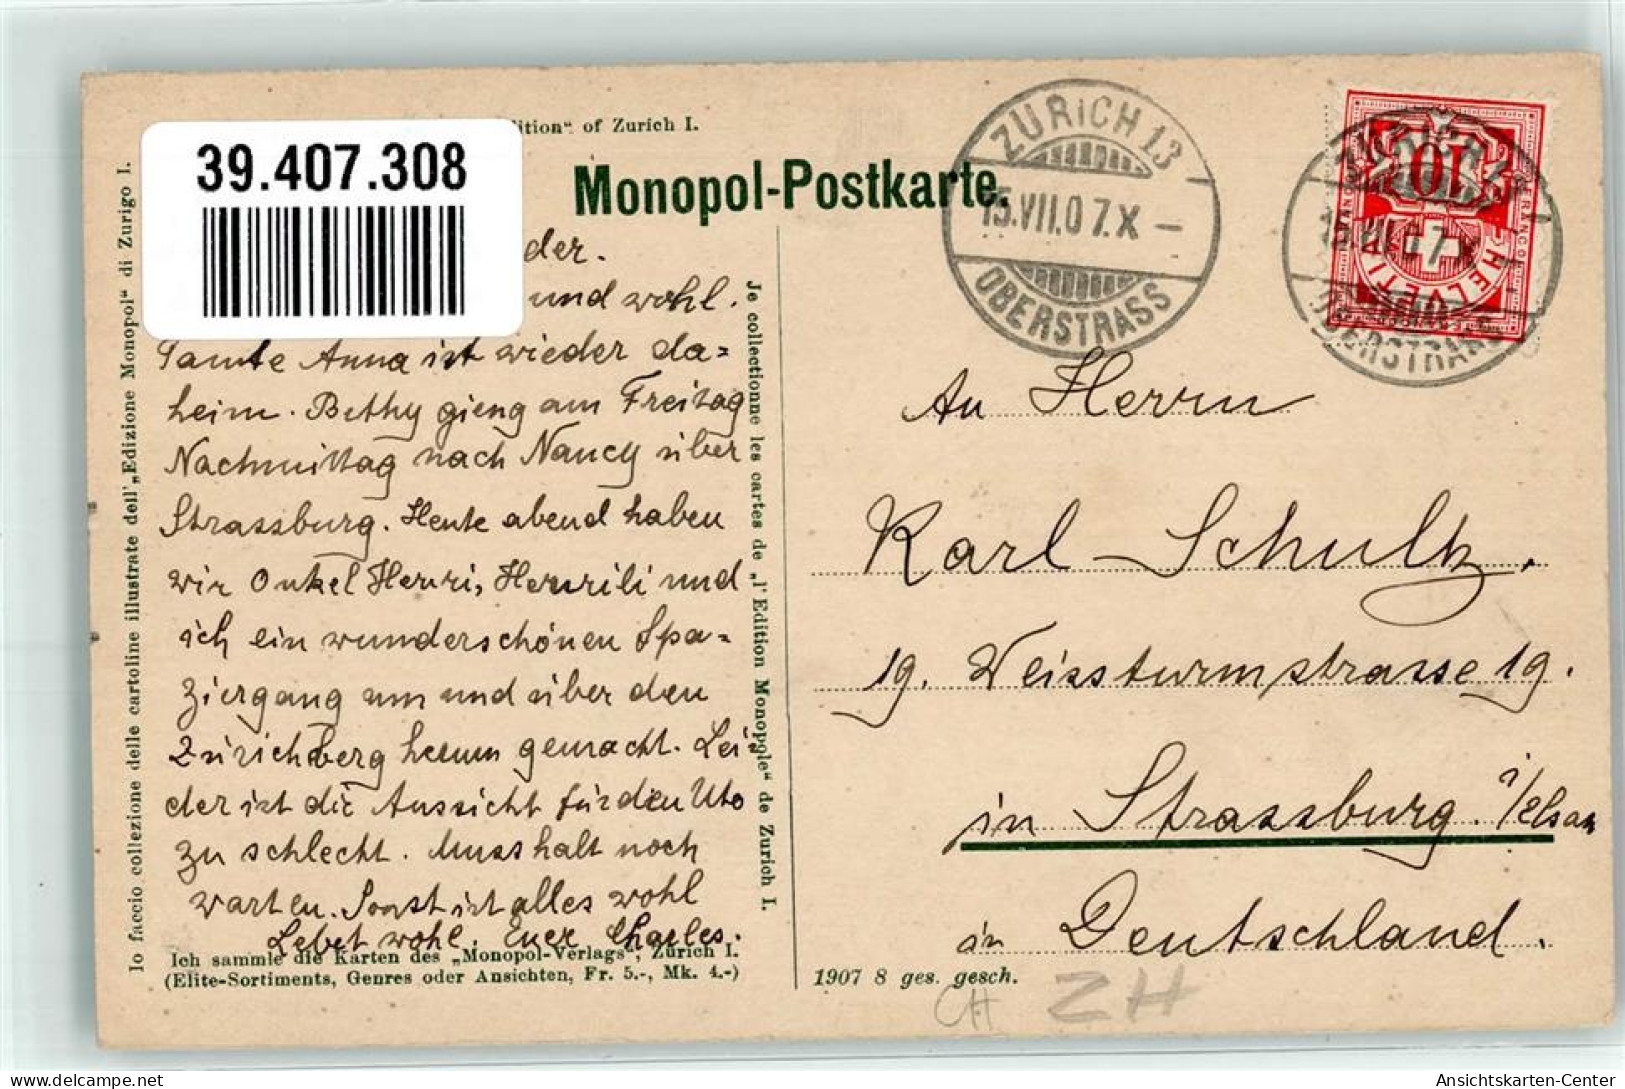 39.407.308
ition" of Zurich I.
Monopol-Postkarte.
ZÜRICH 13
15.VII.07.X –
OBERSTRASS
10
FRANCO
HELVETIA
15.VII.07.X –
OBERSTRASS
Io faccio collezione delle cartoline illustrate dell' „Edizione Monopol" di Zurigo I.
der.
und wohl.
Tante Anna ist wieder da=
heim. Bethy gieng am Freitag
Nachmittag nach Nancy über
Strassburg. Heute abend haben
wir Onkel Henri, Henrili und
ich ein wunderschönen Spa=
ziergang um und über den
Zürichberg herum gemacht. Lei
der ist die Aussicht für den Uto
zu schlecht. Muss halt noch
warten. Sonst ist alles wohl
Lebet wohl. Euer Charles.
Ich sammle die Karten des „Monopol-Verlags", Zürich I.
(Elite-Sortiments, Genres oder Ansichten, Fr. 5.-, Mk. 4.-)
Je collectionne les cartes de „l'Edition Monopole" de Zurich I.
An Herrn
Karl Schultz.
19. Weissturmstrasse 19.
in Strassburg. i/Elsass
in Deutschland.
1907 8 ges. gesch.
CH
ZH
Ansichtskarten-Center